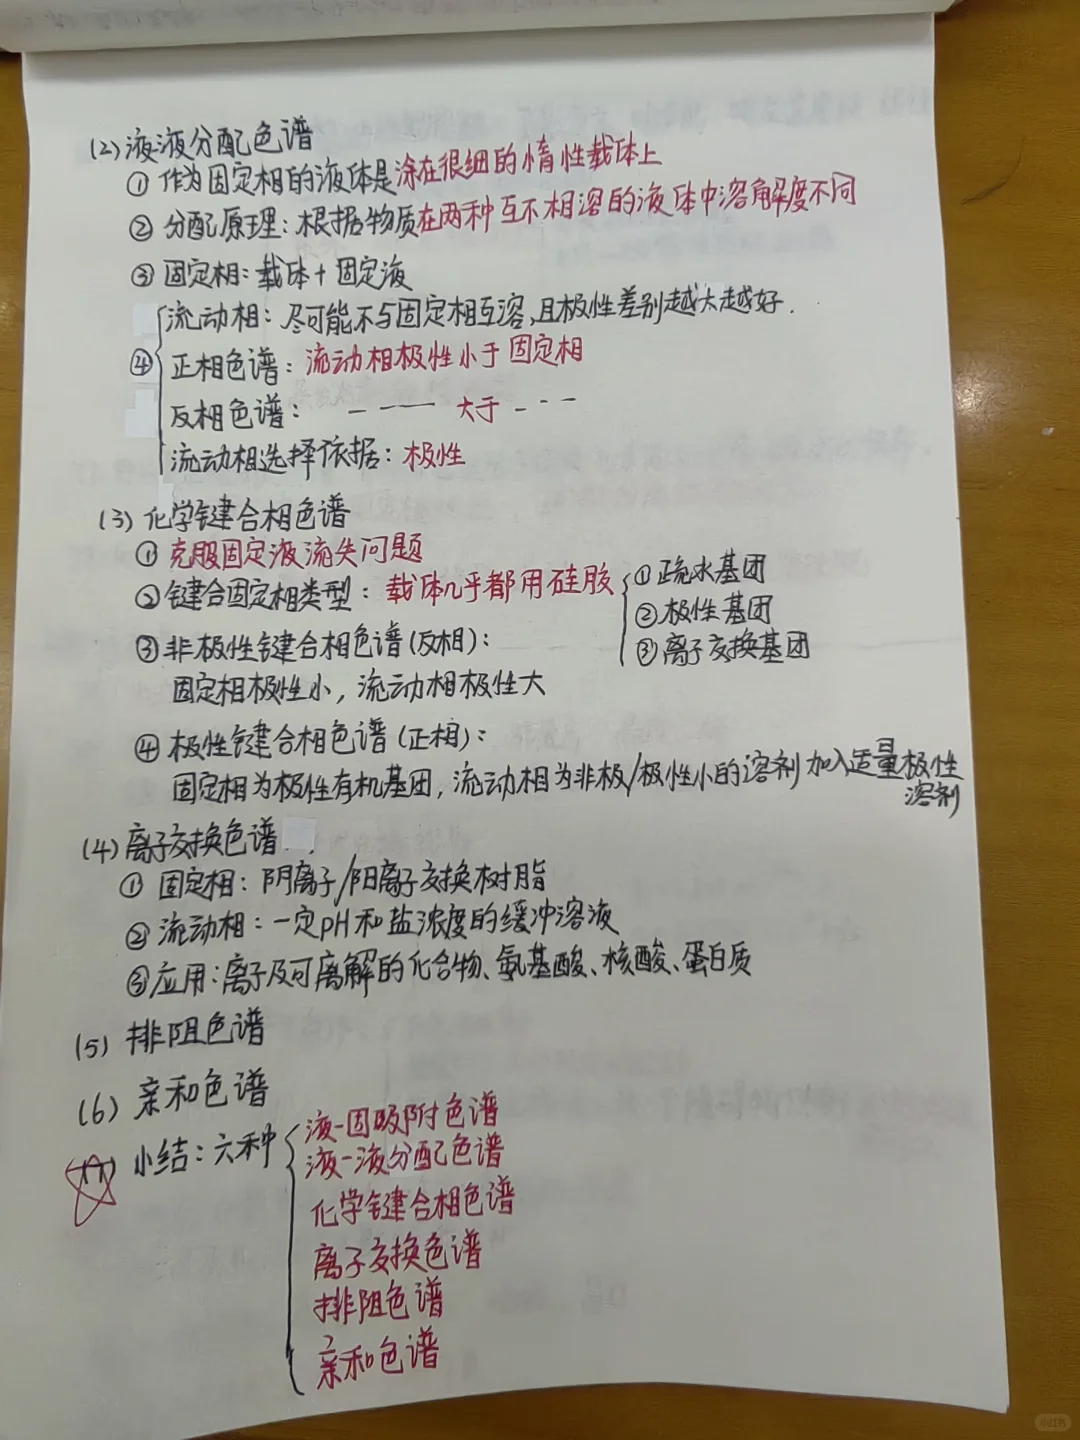 (2) 液液分配色谱
① 作为固定相的液体是涂在很细的惰性载体上
② 分配原理：根据物质在两种互不相溶的液体中溶解度不同
③ 固定相：载体+固定液
④ 流动相：尽可能不与固定相互溶，且极性差别越大越好.
正相色谱：流动相极性小于固定相
反相色谱： — — — 大于 — - —
流动相选择依据：极性
(3) 化学键合相色谱
① 克服固定液流失问题
② 键合固定相类型：载体几乎都用硅胶
① 疏水基团
② 极性基团
③ 离子交换基团
③ 非极性键合相色谱(反相)：
固定相极性小，流动相极性大
④ 极性键合相色谱(正相)：
固定相为极性有机基团，流动相为非极/极性小的溶剂加入适量极性
溶剂
(4) 离子交换色谱
① 固定相：阴离子/阳离子交换树脂
② 流动相：一定pH和盐浓度的缓冲溶液
③ 应用：离子及可离解的化合物、氨基酸、核酸、蛋白质
(5) 排阻色谱
(6) 亲和色谱
小结：六种
液-固吸附色谱
液-液分配色谱
化学键合相色谱
离子交换色谱
排阻色谱
亲和色谱
小红书